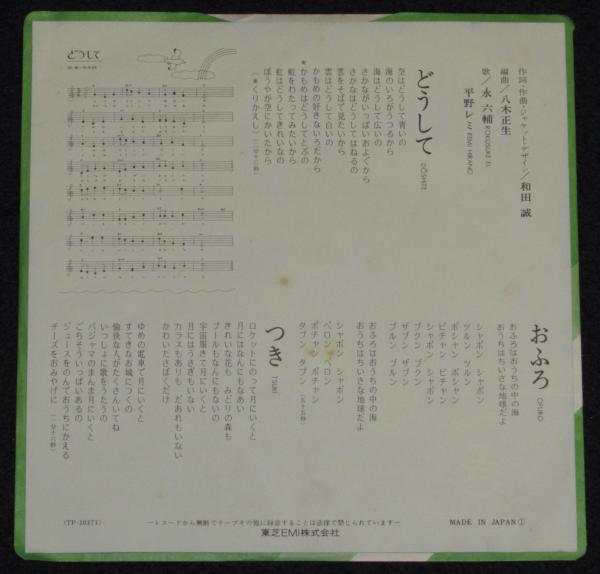 作詞・作曲・ジャケットデザイン/和田 誠
編曲/八木正生
歌/永 六輔 ROKUSUKE EI
平野レミ REMI HIRANO
どうして DŌSHITE
空はどうして青いの
海のいろがうつるから
海はどうして広いの
さかながいっぱいおよぐから
さかなはどうしてはねるの
雲をそばで見たいから
雲はどうして白いの
かもめの好きないろだから
*かもめはどうしてとぶの
虹をわたってみたいから
虹はどうしてきれいなの
ぼうやが空にかいたから
(*くりかえし)
どうして
おふろ OFURO
おふろはおうちの中の海
おうちはちいさな地球だよ
シャボン シャボン
ツルン ツルン
ポシャン ポシャン
ピチャン ピチャン
シャボン シャボン
ブクン ブクン
ザブン ザブン
ブルン ブルン
おふろはおうちの中の海
おうちはちいさな地球だよ
シャボン シャボン
ペロン ペロン
ポチャン ポチャン
タプン タプン
つき TSUKI
ロケットにのって月にいくと
月にはなんにもなあい
きれいな花も みどりの森も
プールもなんにもないの
宇宙服きて月にいくと
月にはうさぎもいない
カラスもありも だあれもいない
かわいたさばくだけ
ゆめの電車で月にいくと
すてきなお城につくの
愉快な人がたくさんいてね
いっしょに歌をうたうの
パジャマのまんま月にいくと
ごちそういっぱいあるの
ジュースをのんでおうちにかえる
チーズをおみやげに
(TP-10371)
―レコードから無断でテープその他に録音することは法律で禁じられています―
MADE IN JAPAN①
東芝EMI株式会社